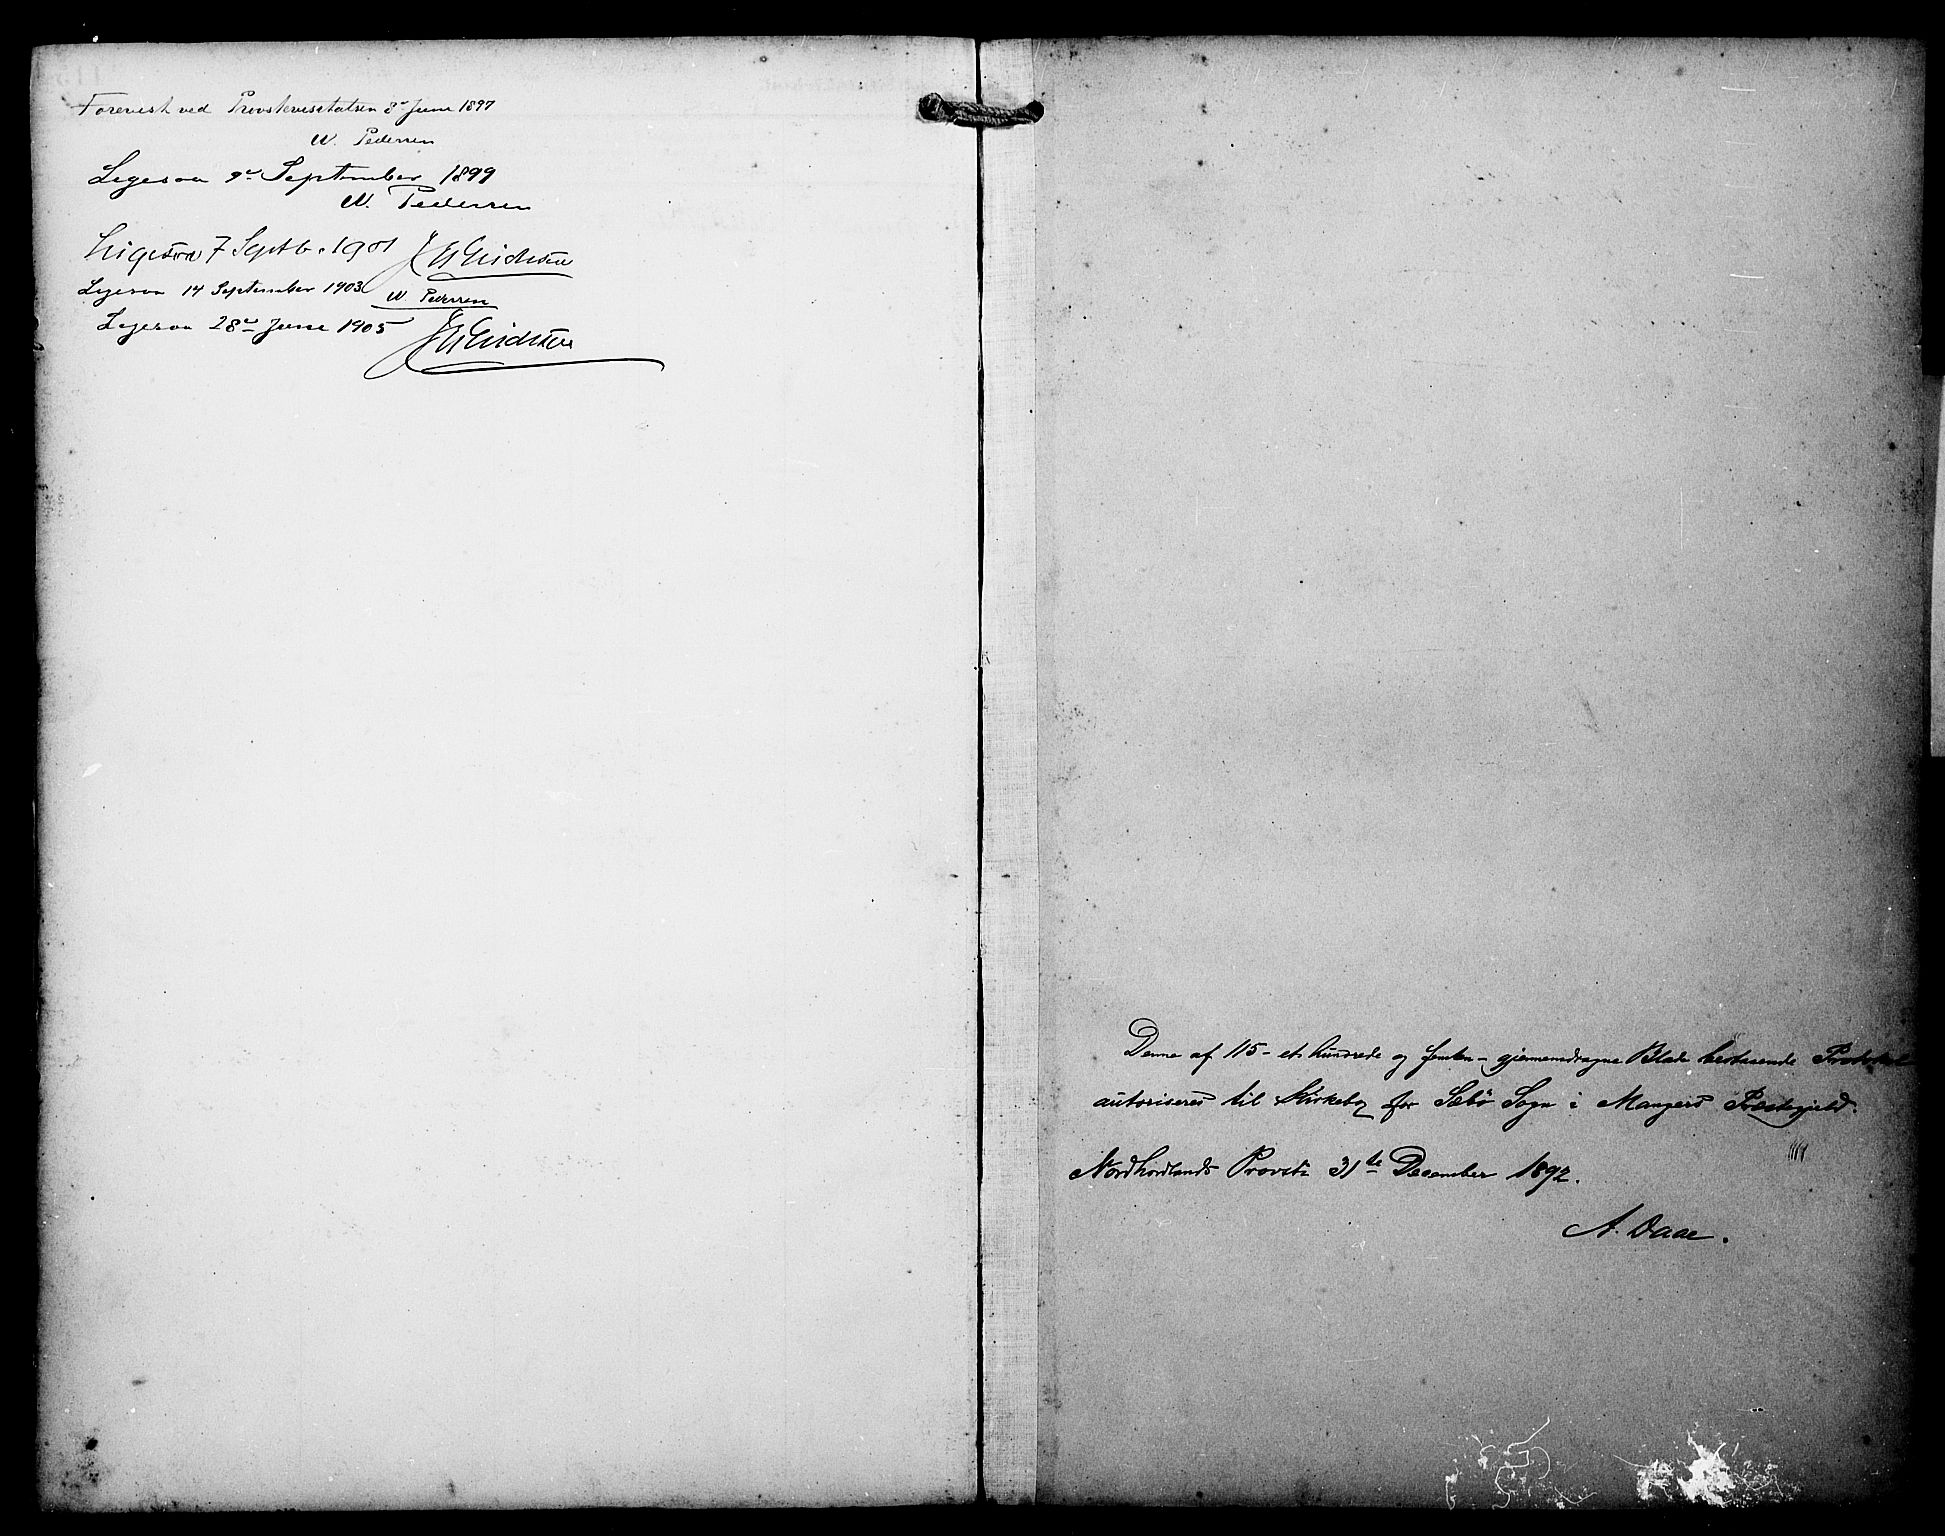 Forevist ved Provstevisitatsen 8de Juni 1897
W. Pedersen
Ligesaa 9de September 1899
W. Pedersen
Ligesaa 7 Septb. 1901
Ligesaa 14 September 1903 W. Pedersen
Ligesaa 28de Juni 1905
Denne af 115 - et hundrede og femten - gjennemdragne Blade bestaaende Protokol
autoriseres til Kirkebog for Sæbö Sogn i Mangers Præstegjeld.
Nordhordlands Provsti 31te December 1892.
A. Daae.